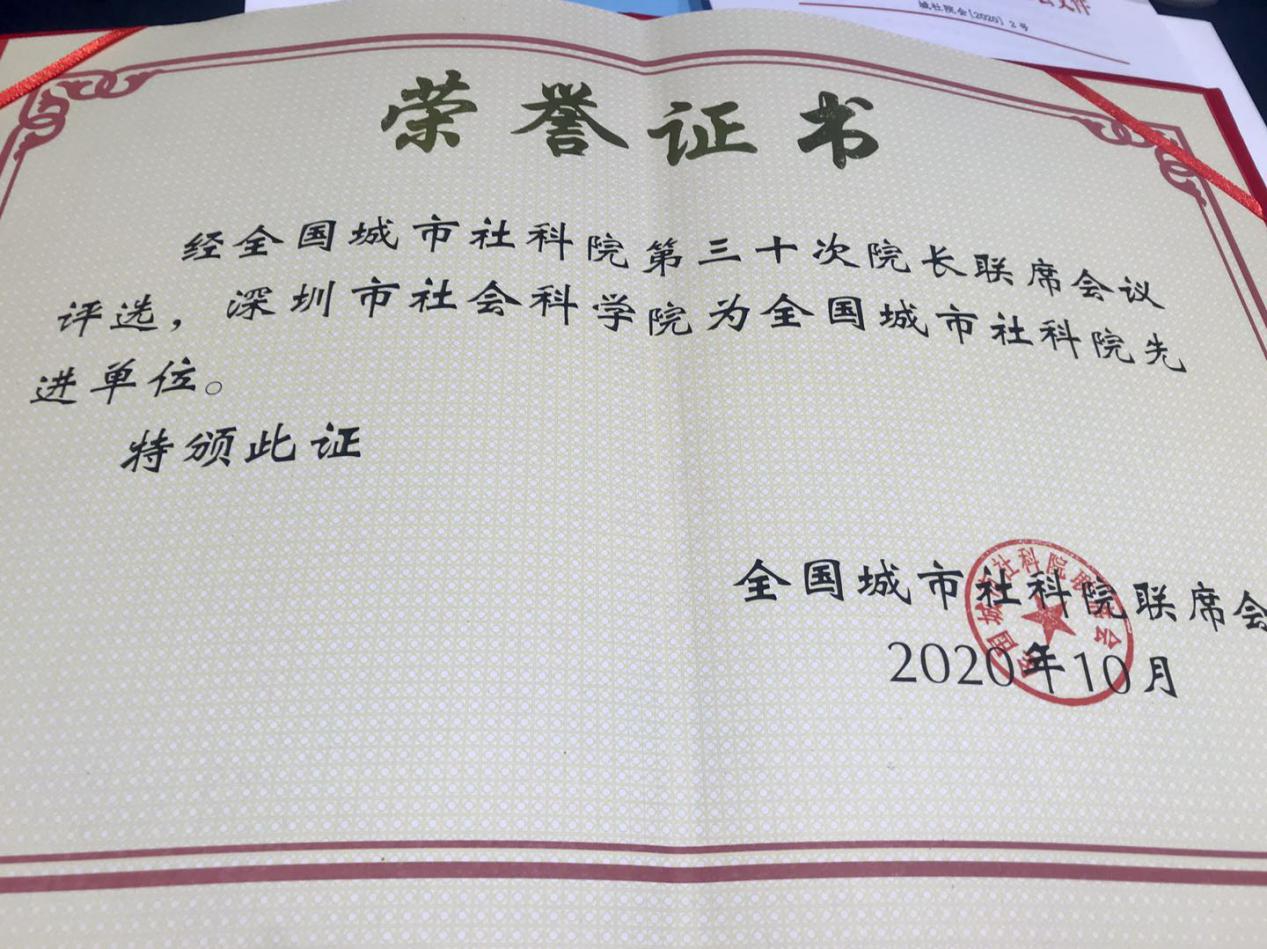 城社院会[2020] 2号
荣誉证书
经全国城市社科院第三十次院长联席会议
评选，深圳市社会科学院为全国城市社科院先
进单位。
特颁此证
全国城市社科院联席会
2020年10月